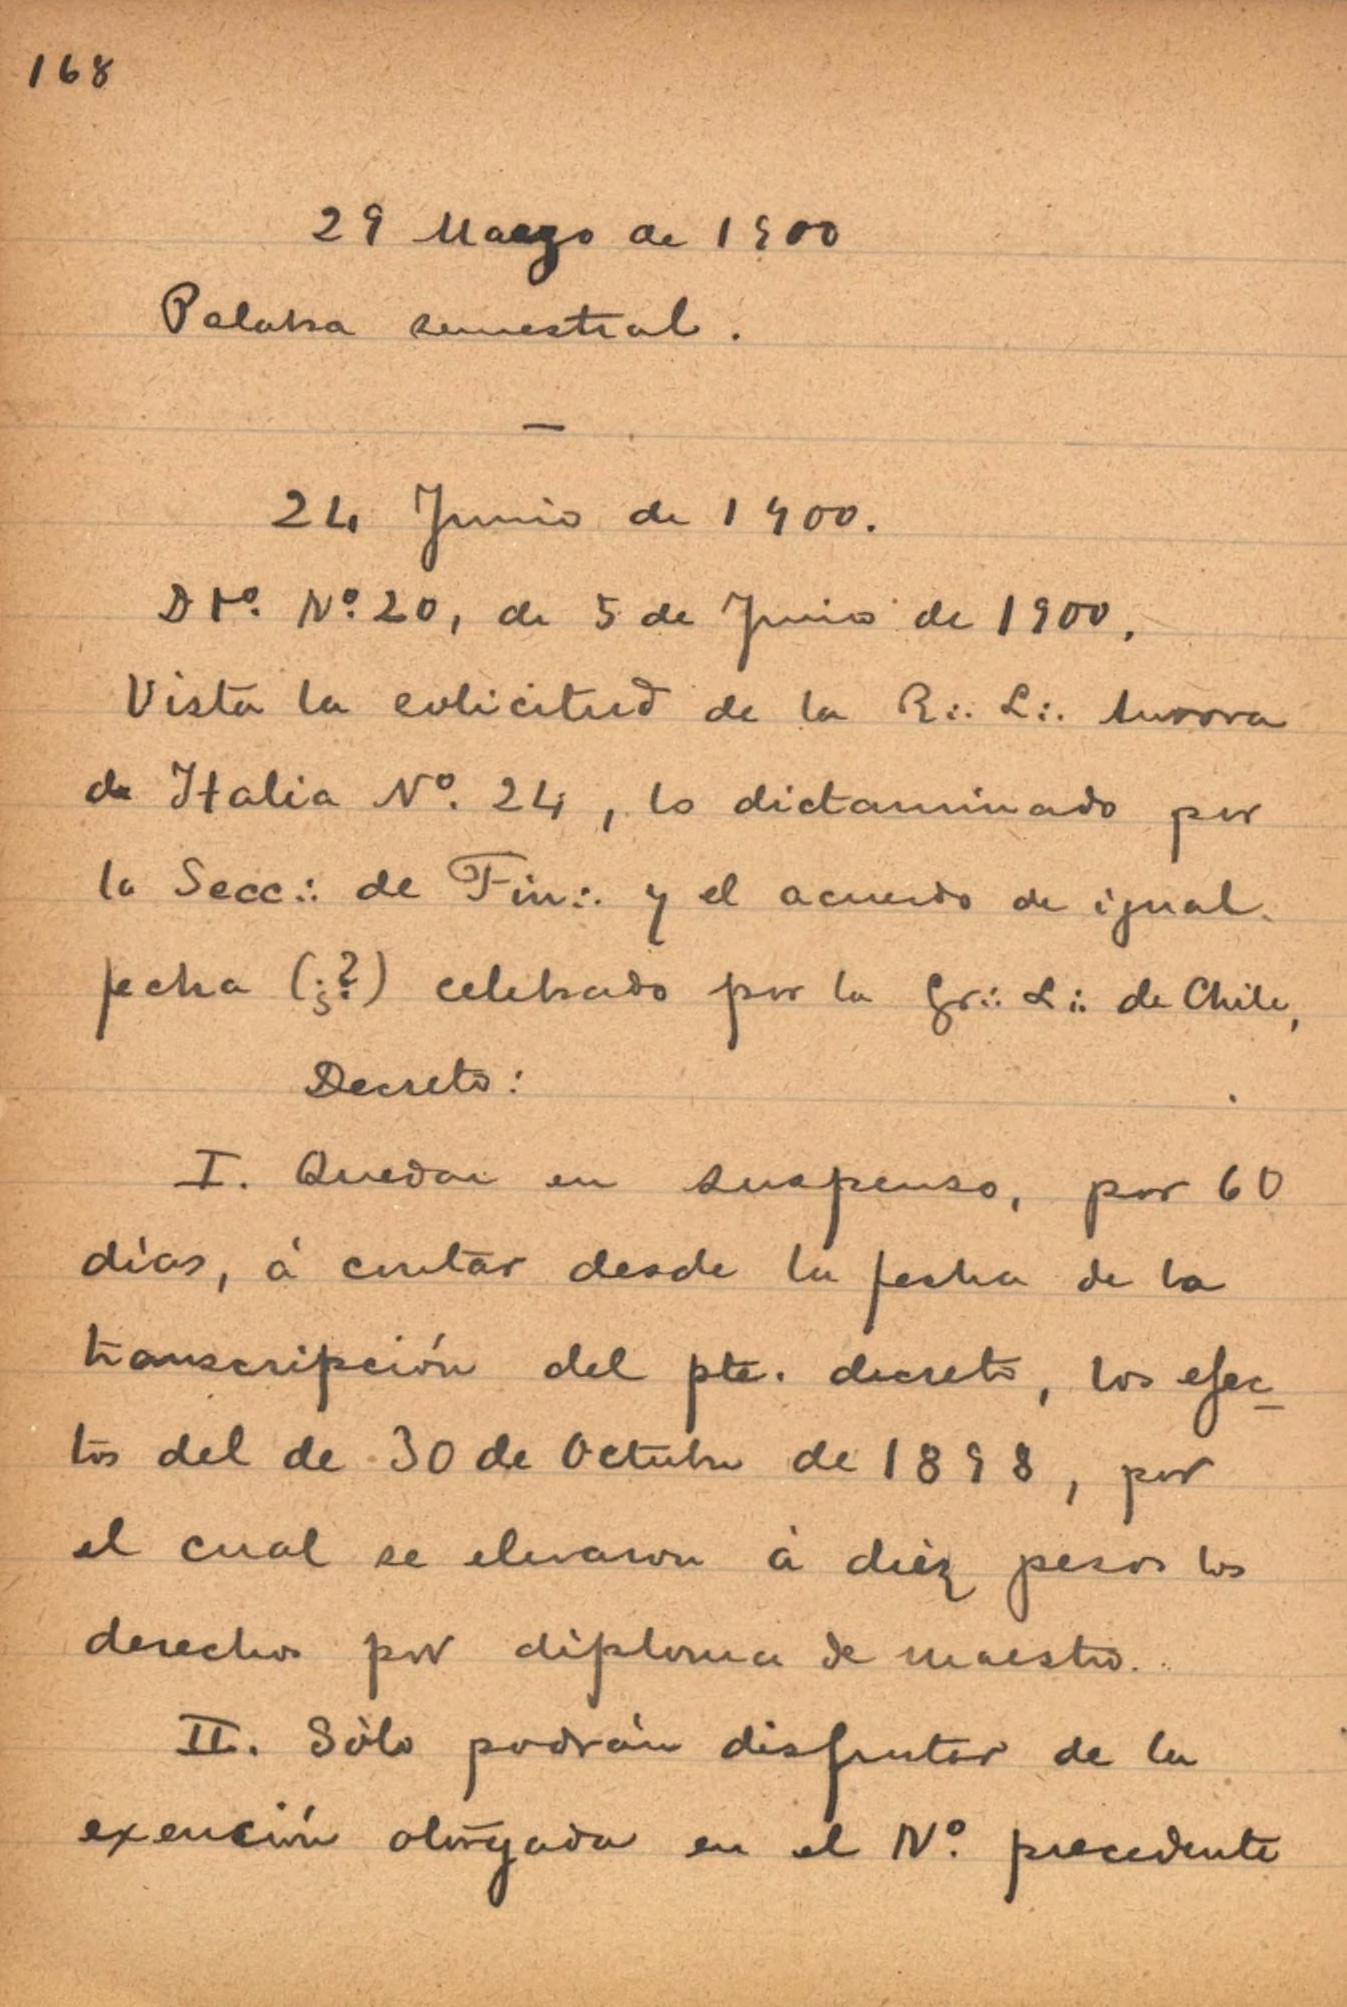 168
29 Marzo de 1900
Palabra semestral.
—
24 Junio de 1900.
Dto. Nº. 20, de 5 de Junio de 1900.
Vista la solicitud de la R∴ L∴ Aurora
de Italia Nº. 24, lo dictaminado por
la Secc∴ de Fin∴ y el acuerdo de igual
fecha (¿?) celebrado por la Gr∴ L∴ de Chile,
Decreto:
I. Quedan en suspenso, por 60
días, á contar desde la fecha de la
transcripción del pte. decreto, los efec-
tos del de 30 de Octubre de 1898, por
el cual se elevaron á diez pesos los
derechos por diploma de maestro.
II. Sólo podrán disfrutar de la
exención otorgada en el Nº. precedente